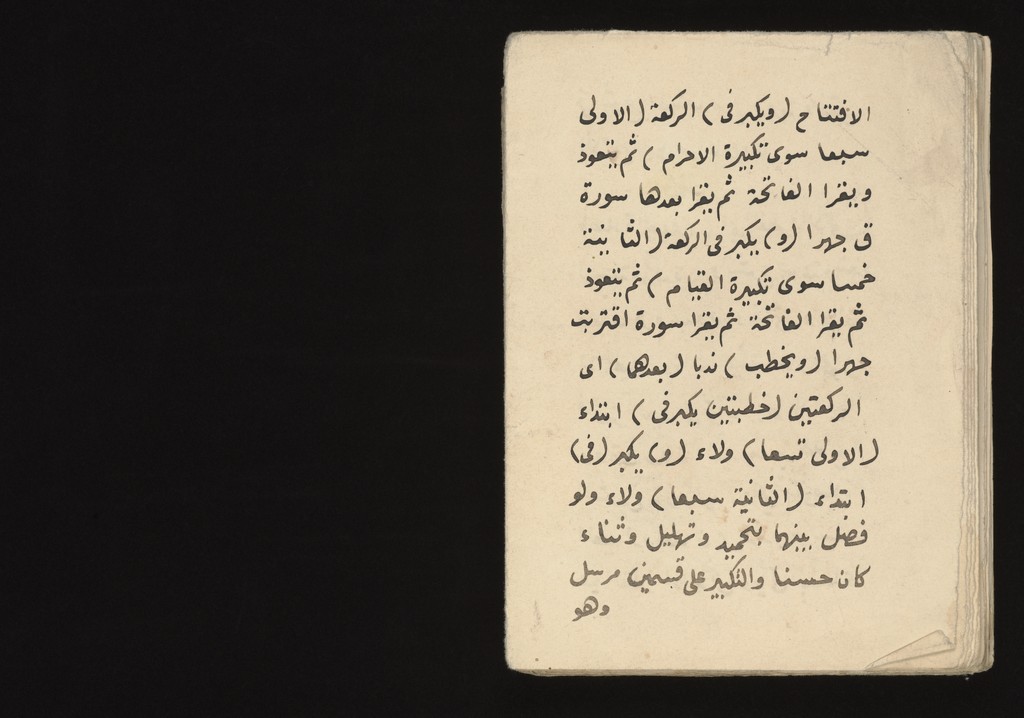 الافتتاح (ويكبر فى) الركعة (الاولى
سبعا سوى تكبيرة الاحرام) ثم يتعوذ
ويقرا الفاتحة ثم يقرا بعدها سورة
ق جهرا (و) يكبر فى الركعة (الثانية
خمسا سوى تكبيرة القيام) ثم يتعوذ
ثم يقرا الفاتحة ثم يقرا سورة اقتربت
جهرا (ويخطب) ندبا (بعدهما) اى
الركعتين (خطبتين يكبر فى) ابتداء
(الاولى تسعا) ولاء (و) يكبر (فى)
ابتداء (الثانية سبعا) ولاء ولو
فصل بينهما بتحميد وتهليل وثناء
كان حسنا والتكبير على قسمين مرسل
وهو